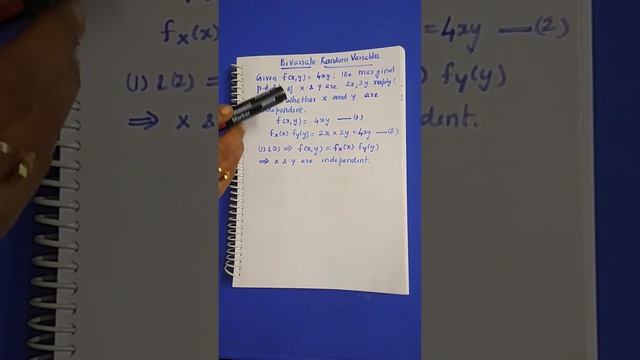 Bivariate Random Variables
Given f(x,y) = 4xy, the marginal
p.d.f of x & y are 2x, 2y resply.
whether x and y are
independent.
f(x,y) = 4xy — (1)
fx(x) fy(y) = 2x × 2y = 4xy — (2)
(1) & (2) ⇒ f(x,y) = fx(x) fy(y)
⇒ x & y are independent.
fx(x)
= 4xy — (2)
(1) & (2) =
fy(y)
⇒ x &
dent.